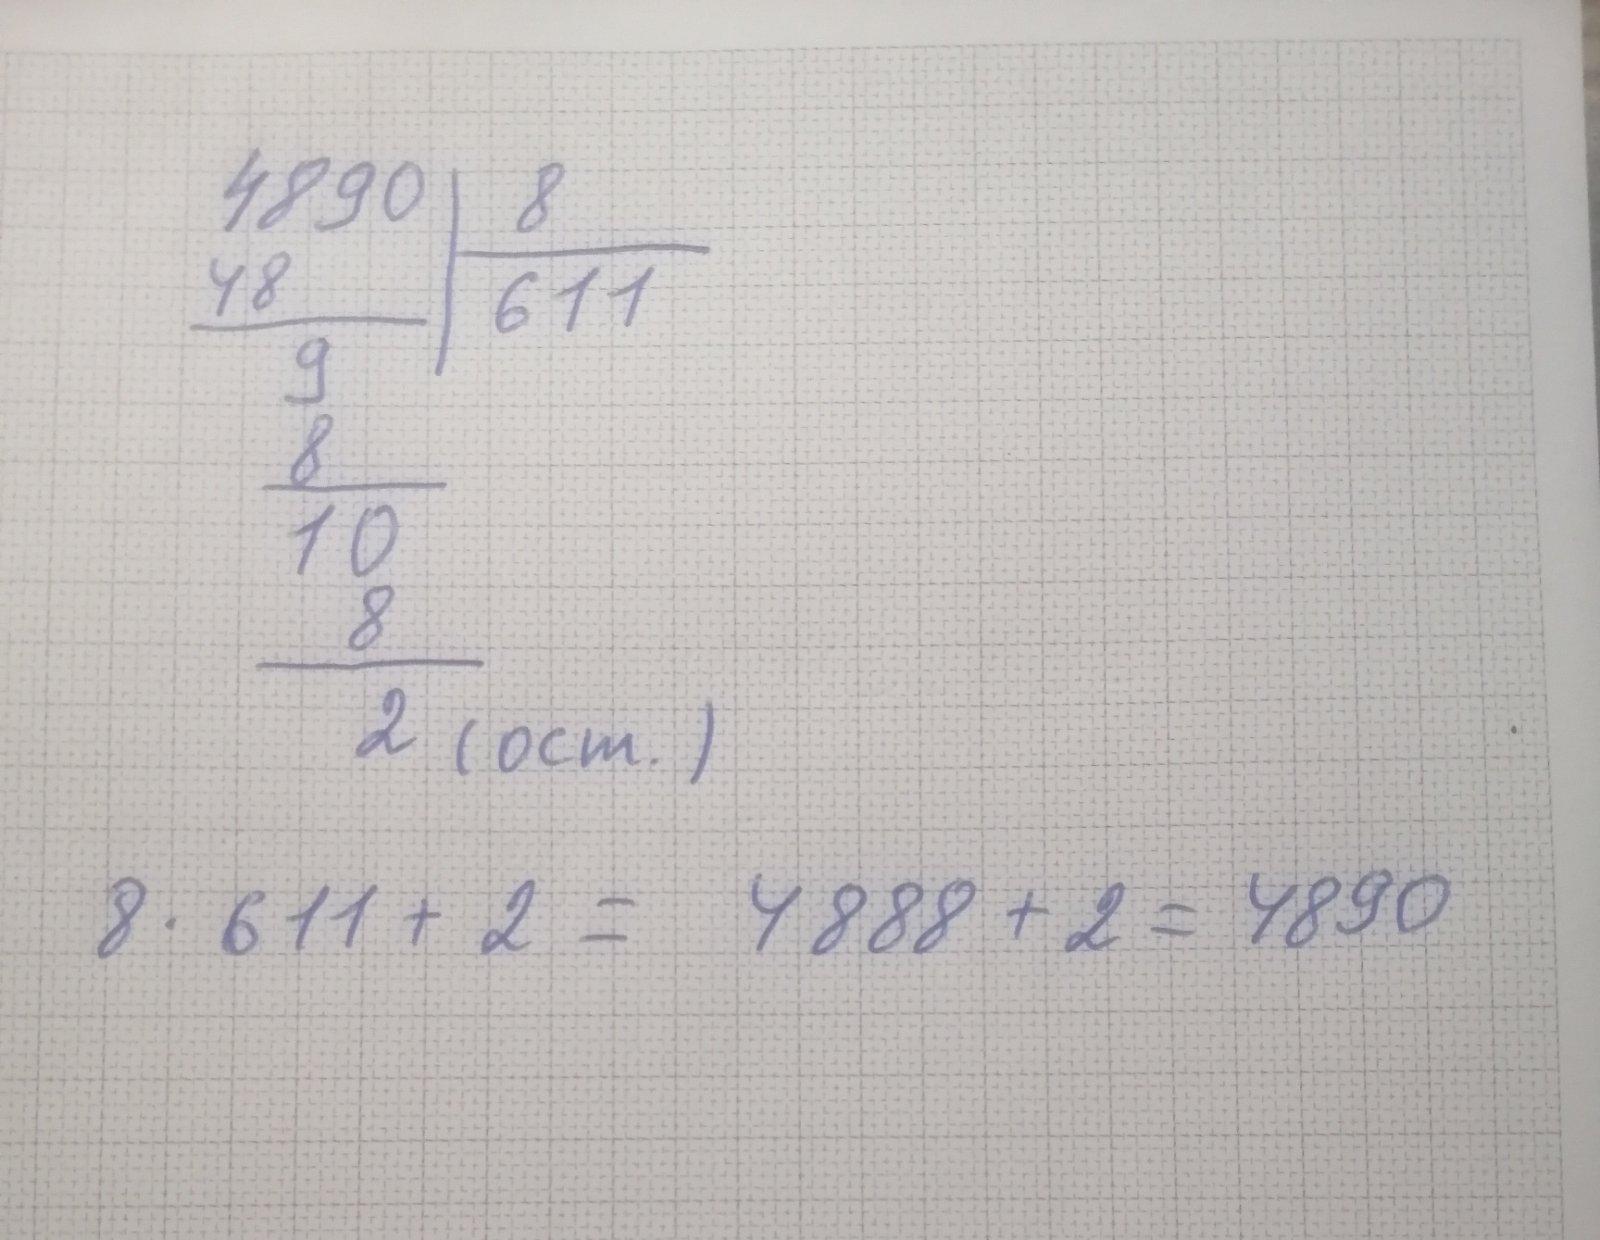 4890 8
48 611
9
8
10
8
2 (ост.)
8 · 611 + 2 = 4888 + 2 = 4890